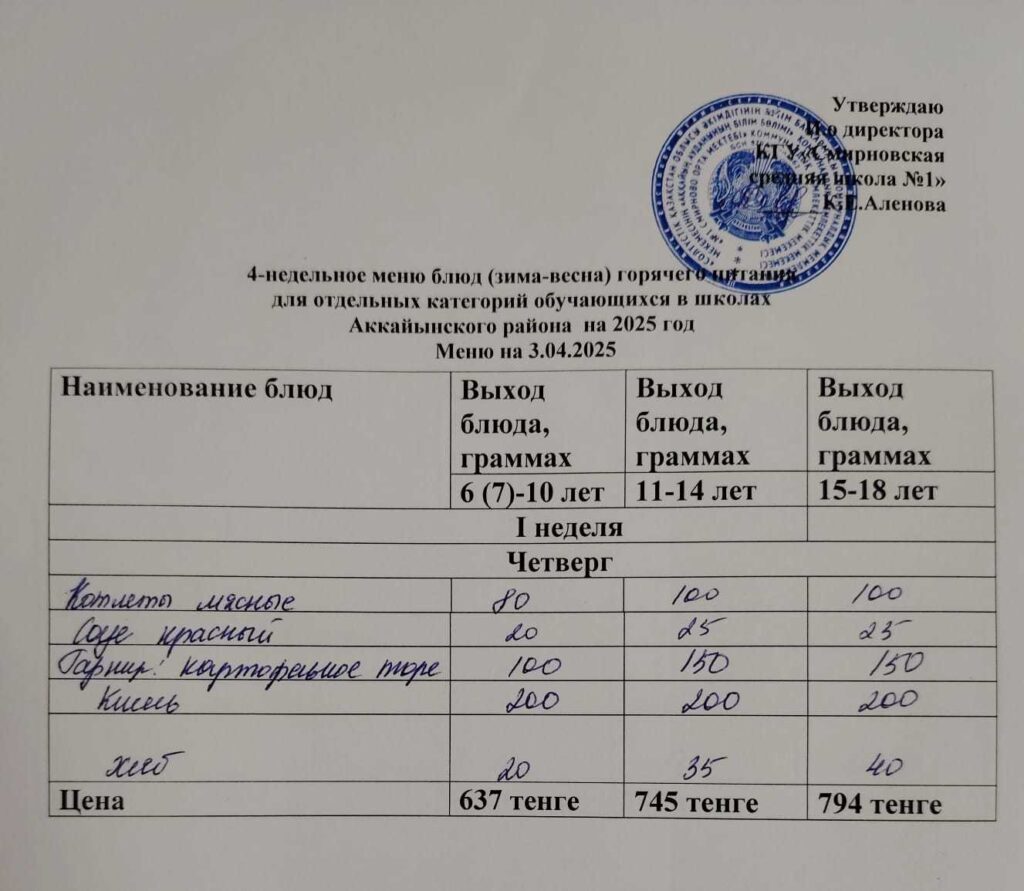 Утверждаю
И.о директора
КГУ «Смирновская
средняя школа №1»
К.Е.Аленова
4-недельное меню блюд (зима-весна) горячего питания
для отдельных категорий обучающихся в школах
Аккайынского района на 2025 год
Меню на 3.04.2025
Наименование блюд Выход блюда, граммах Выход блюда, граммах Выход блюда, граммах
6 (7)-10 лет 11-14 лет 15-18 лет
I неделя
Четверг
Котлеты мясные 80 100 100
Соус красный 20 25 25
Гарнир: картофельное пюре 100 150 150
Кисель 200 200 200
хлеб 20 35 40
Цена 637 тенге 745 тенге 794 тенге